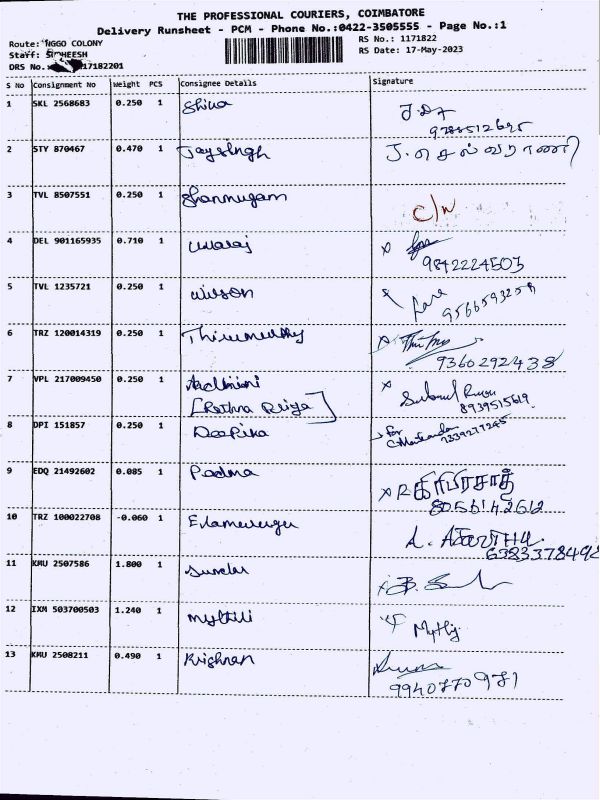 THE PROFESSIONAL COURIERS, COIMBATORE
Delivery Runsheet - PCM - Phone No.:0422-3505555 - Page No.:1
Route: NGGO COLONY
RS No.: 1171822
Staff:
RS Date: 17-May-2023
DRS No. 17182201
S No Consignment No Weight PCS Consignee Details Signature
1 SKL 2568683 0.250 1 Shiva
2 STY 870467 0.470 1 Jaysingh J. செல்வராணி
3 TVL 8507551 0.250 1 Shanmugam C/N
4 DEL 901165935 0.710 1
9842224503
5 TVL 1235721 0.250 1 Wilson
6 TRZ 120014319 0.250 1 Thirumurthy
9360292438
7 VPL 217009450 0.250 1
[Rathna Priya]
8939515619
8 DPI 151857 0.250 1 Deepika For
7339277245
9 EDQ 21492602 0.085 1 Padma R கிரிபிரசாத்
8056142612
10 TRZ 100022708 -0.060 1
6383378498
11 KMU 2507586 1.800 1 B.
12 IXM 503700503 1.240 1 Mythili
13 KMU 2508211 0.490 1 Krishnan
9940770981